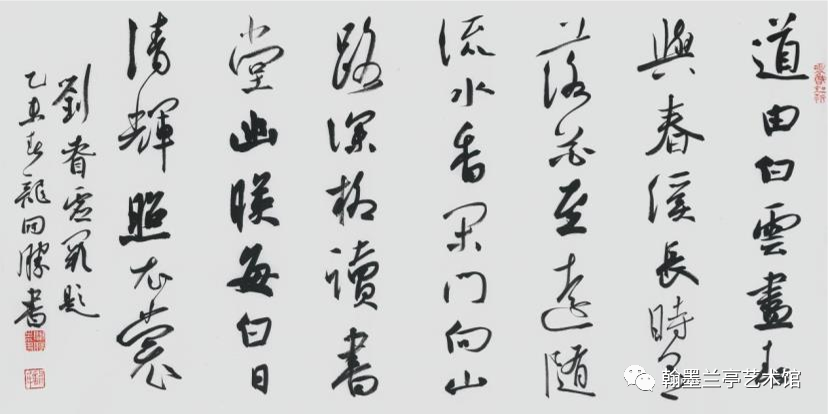 道由白雲盡春
與春溪長時有
落花至遠隨
流水香闲門向山
路深柳讀書
堂幽映每白日
清輝照衣裳
劉眘虛闕題
乙未春龍回勝書
翰墨兰亭艺术馆